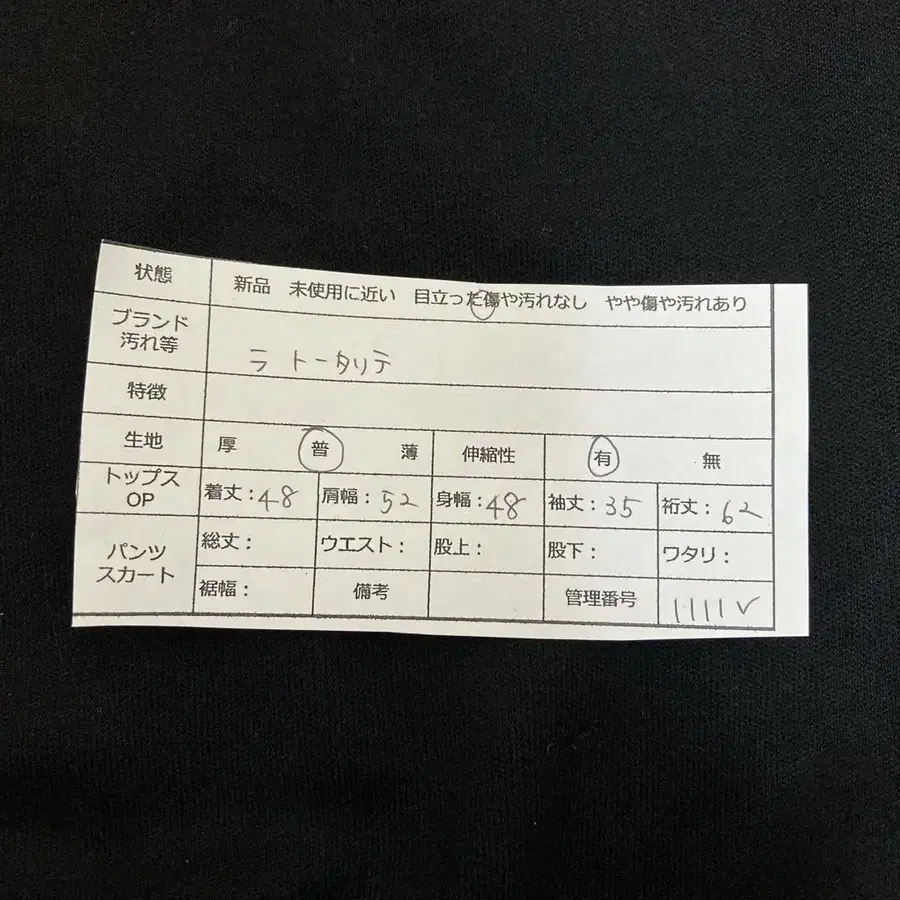 状態 新品 未使用に近い 目立った傷や汚れなし やや傷や汚れあり
ブランド
汚れ等 ラ トータリテ
特徴
生地 厚 普 薄 伸縮性 有 無
トップス
OP 着丈:48 肩幅:52 身幅:48 袖丈:35 裄丈:62
パンツ
スカート 総丈: ウエスト: 股上: 股下: ワタリ:
裾幅: 備考 管理番号 1111V